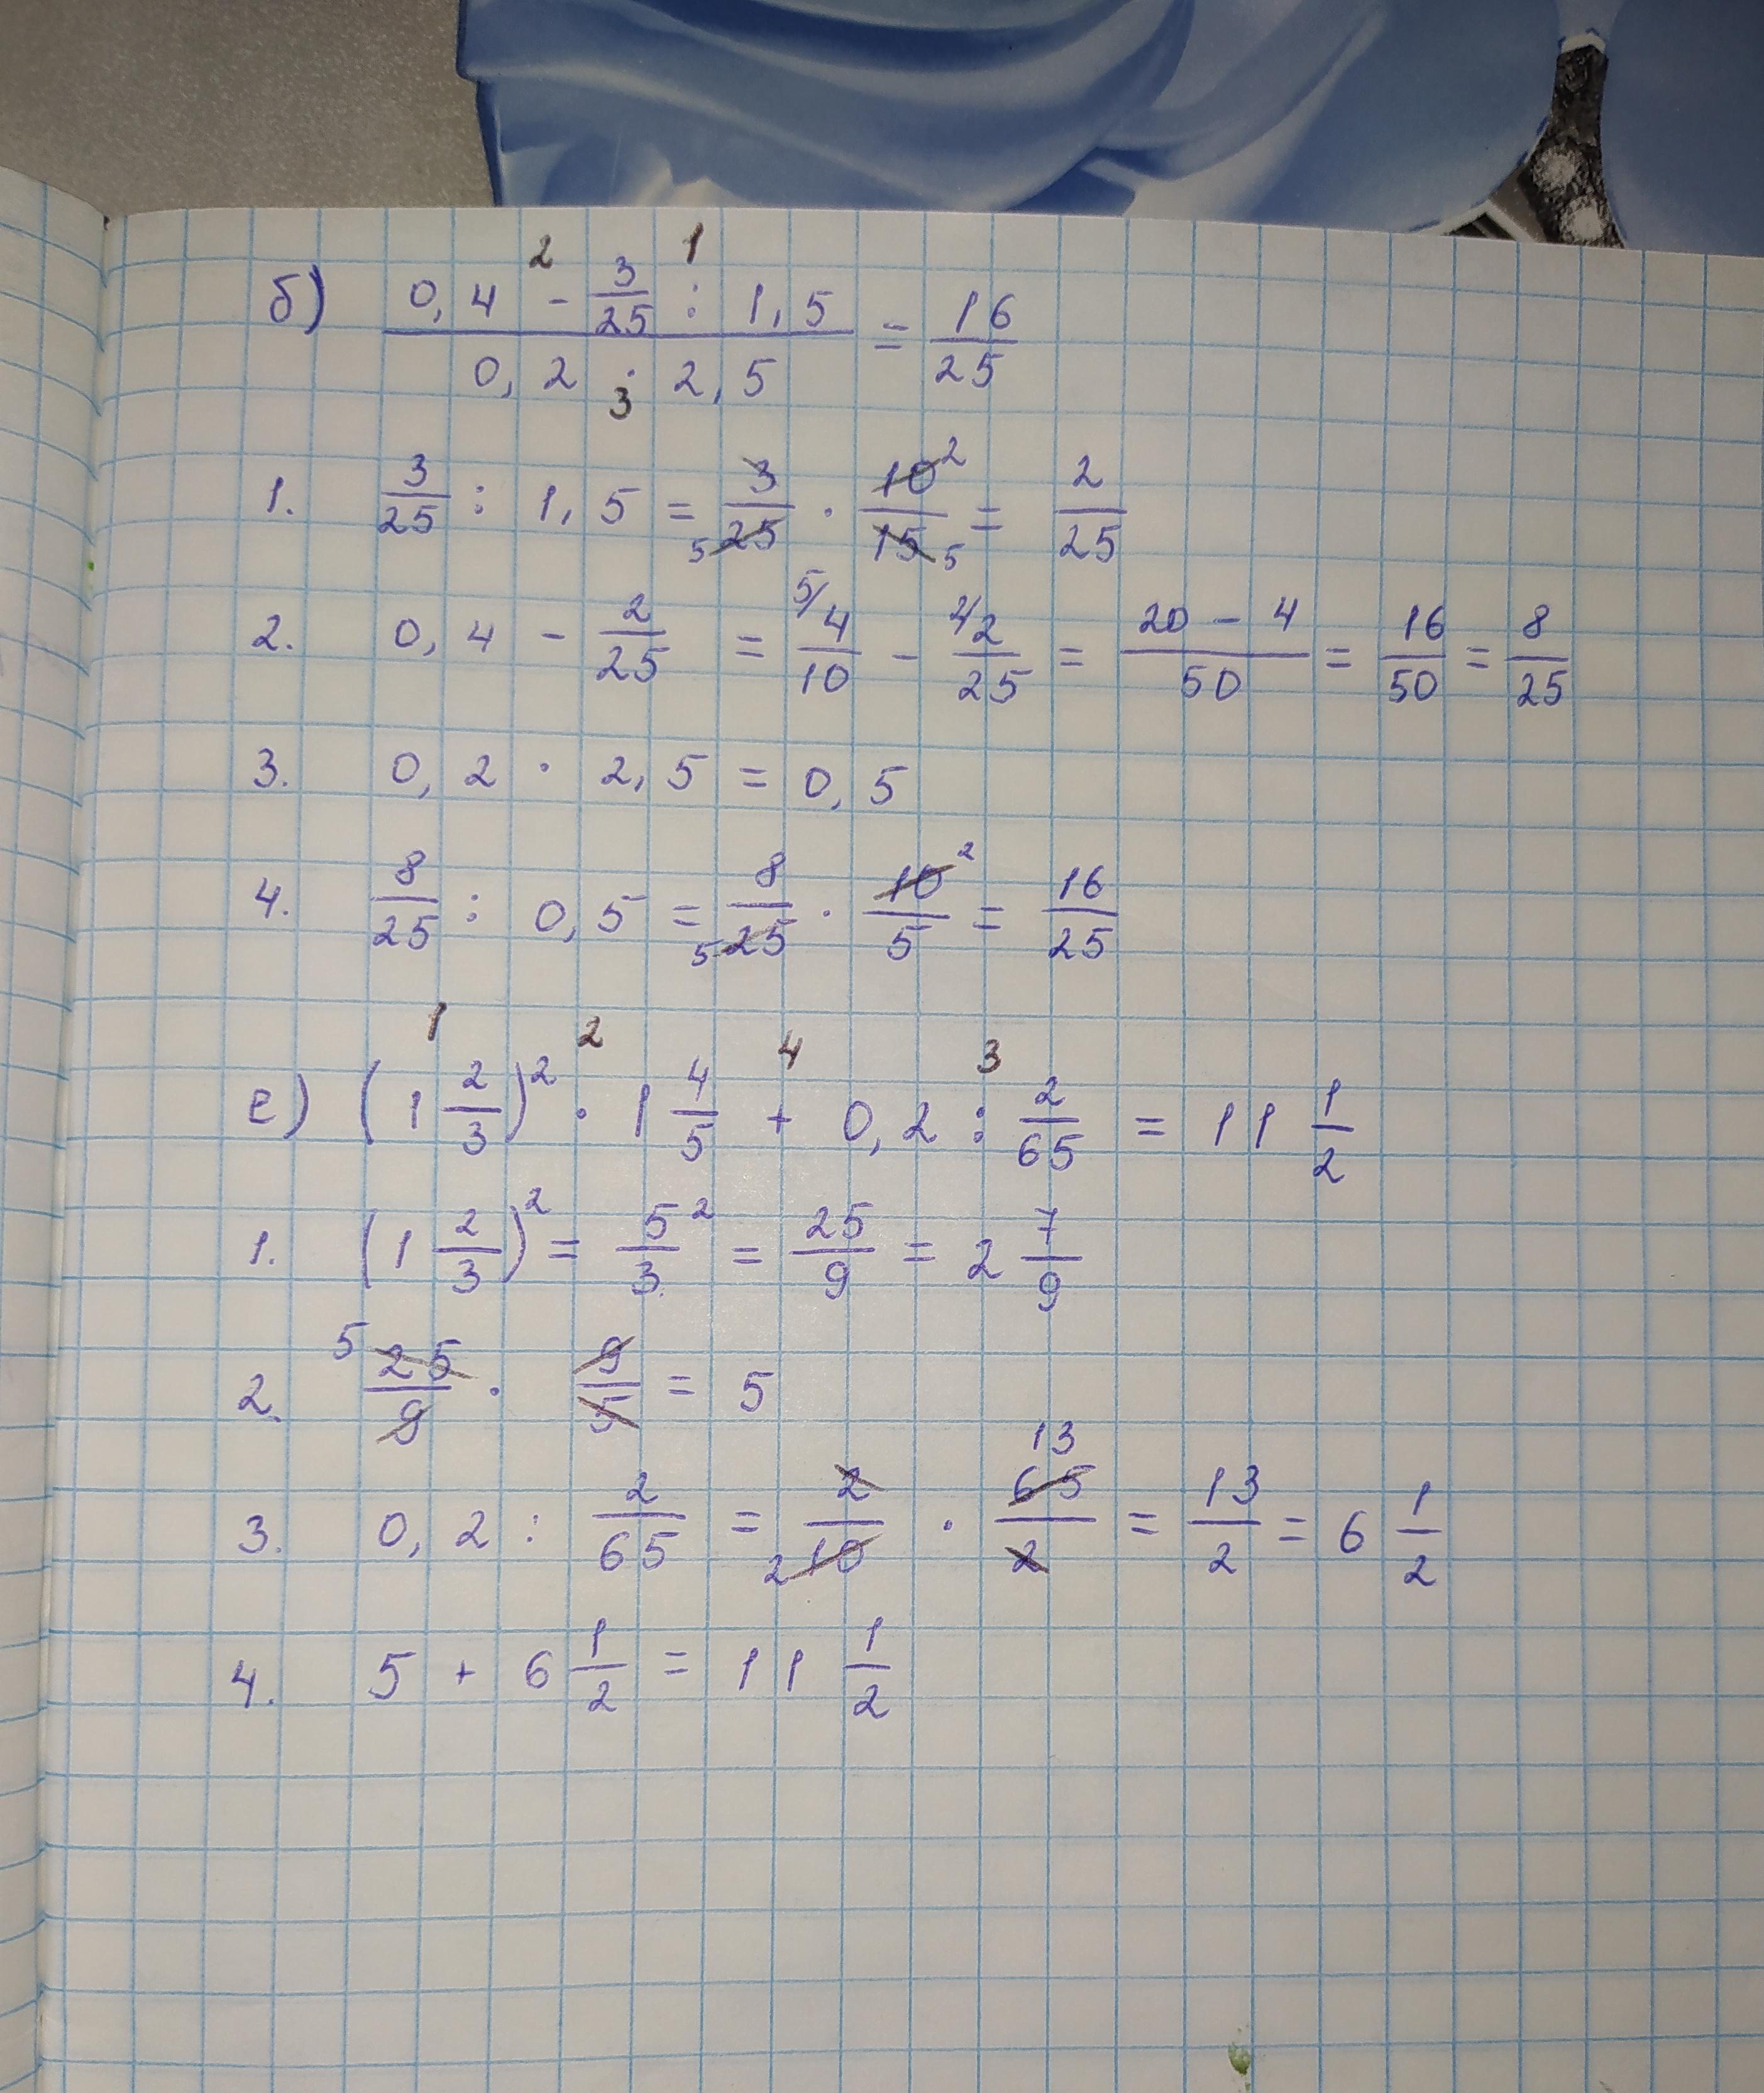 2 1
б) (0,4 - 3/25 : 1,5)/(0,2 · 2,5) = 16/25
3
1. 3/25 : 1,5 = 3/25 5 · 10 2/15 5 = 2/25
2. 0,4 - 2/25 = 5/ 4/10 - 2/ 2/25 = (20 - 4)/50 = 16/50 = 8/25
3. 0,2 · 2,5 = 0,5
4. 8/25 : 0,5 = 8/25 5 · 10 2/5 = 16/25
1 2 4 3
е) (1 2/3)² · 1 4/5 + 0,2 : 2/65 = 11 1/2
1. (1 2/3)² = 5²/3 = 25/9 = 2 7/9
2. 5 25/9 · 9/5 = 5
3. 0,2 : 2/65 = 2/10 2 · 13 65/2 = 13/2 = 6 1/2
4. 5 + 6 1/2 = 11 1/2